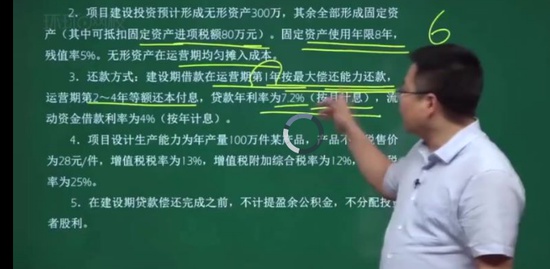 环球网校
6
2. 项目建设投资预计形成无形资产300万，其余全部形成固定资
产（其中可抵扣固定资产进项税额80万元）。固定资产使用年限8年，
残值率5%。无形资产在运营期均匀摊入成本。
3. 还款方式：建设期借款在运营期第1年按最大偿还能力还款，
运营期第2～4年等额还本付息，贷款年利率为7.2%（按月计息），流
动资金借款利率为4%（按年计息）。
4. 项目设计生产能力为年产量100万件某产品，产品不 税售价
为28元/件，增值税税率为13%，增值税附加综合税率为12%，
税率为25%。
5. 在建设期贷款偿还完成之前，不计提盈余公积金，不分配投
者股利。